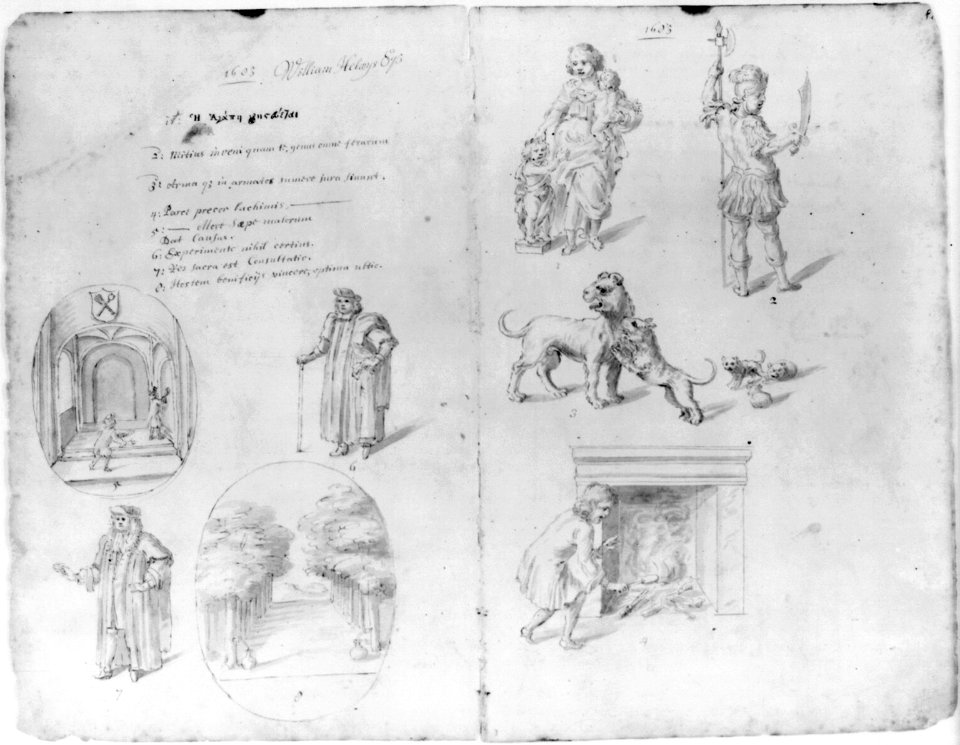 1603 William Helwys Esq
1: Ἡ Ἀγάπη
2: Mitius inveni quam te, genus omne ferarum
3: Arma qz in armatos sumere jura sinunt.
4: Parce precor lachimis.
5: — Mors sæpe malorum
Dat Causas.
6: Experimento nihil certius.
7: Res sacra est Consultatio.
8: Hostem beneficijs vincere, optima ultio.
6
7
1603
1
2
3
4